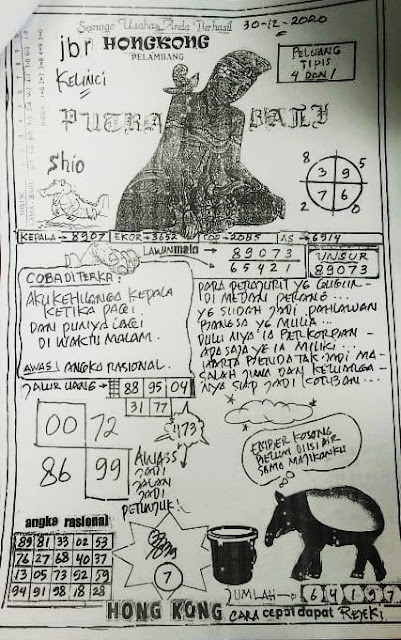 Semoga Usaha Anda Berhasil
30-12-2020
jbr HONGKONG
PELAMBANG
KELINCI
PELUANG
TIPIS
4 DAN 1
PUTRA BALI
Shio
8 5
3 9
7 6
2 0
KEPALA → 8907 EKOR → 3652 COP → 2085 AS → 6914
LAWAN mala → 89073
65421
UNSUR
89073
COBA DITERKA:
AKU KEHILANGAN KEPALA
KETIKA PAGI.
DAN PUNYA LAGI
DI WAKTU MALAM.
AWAS! ANGKA RASIONAL.
PARA PRAJURIT YG GUGUR
DI MEDAN PERANG...
YG SUDAH JADI PAHLAWAN
BANGSA YG MULIA..
DULU NYA IA BERKORBAN
APA SAJA YG IA MILIKI...
HARTA BENDA TAK JADI MA-
SALAH JIWA DAN KELUARGA-
NYA SIAP JADI KORBAN...
JALUR UANG → 88 95 04
31 77
00 72
86 99
473
AWASS
JADI
JALAN
JADI
PETUNJUK!
EMBER KOSONG
BELUM DIISI AIR
SAMA MAJIKANKU
angka rasional
89 81 33 02 53
76 27 68 40 37
13 05 73 92 59
94 91 98 18 28
7
JUMLAH → 6 4 1 9 7
HONG KONG CARA cepat dapat REJEKI